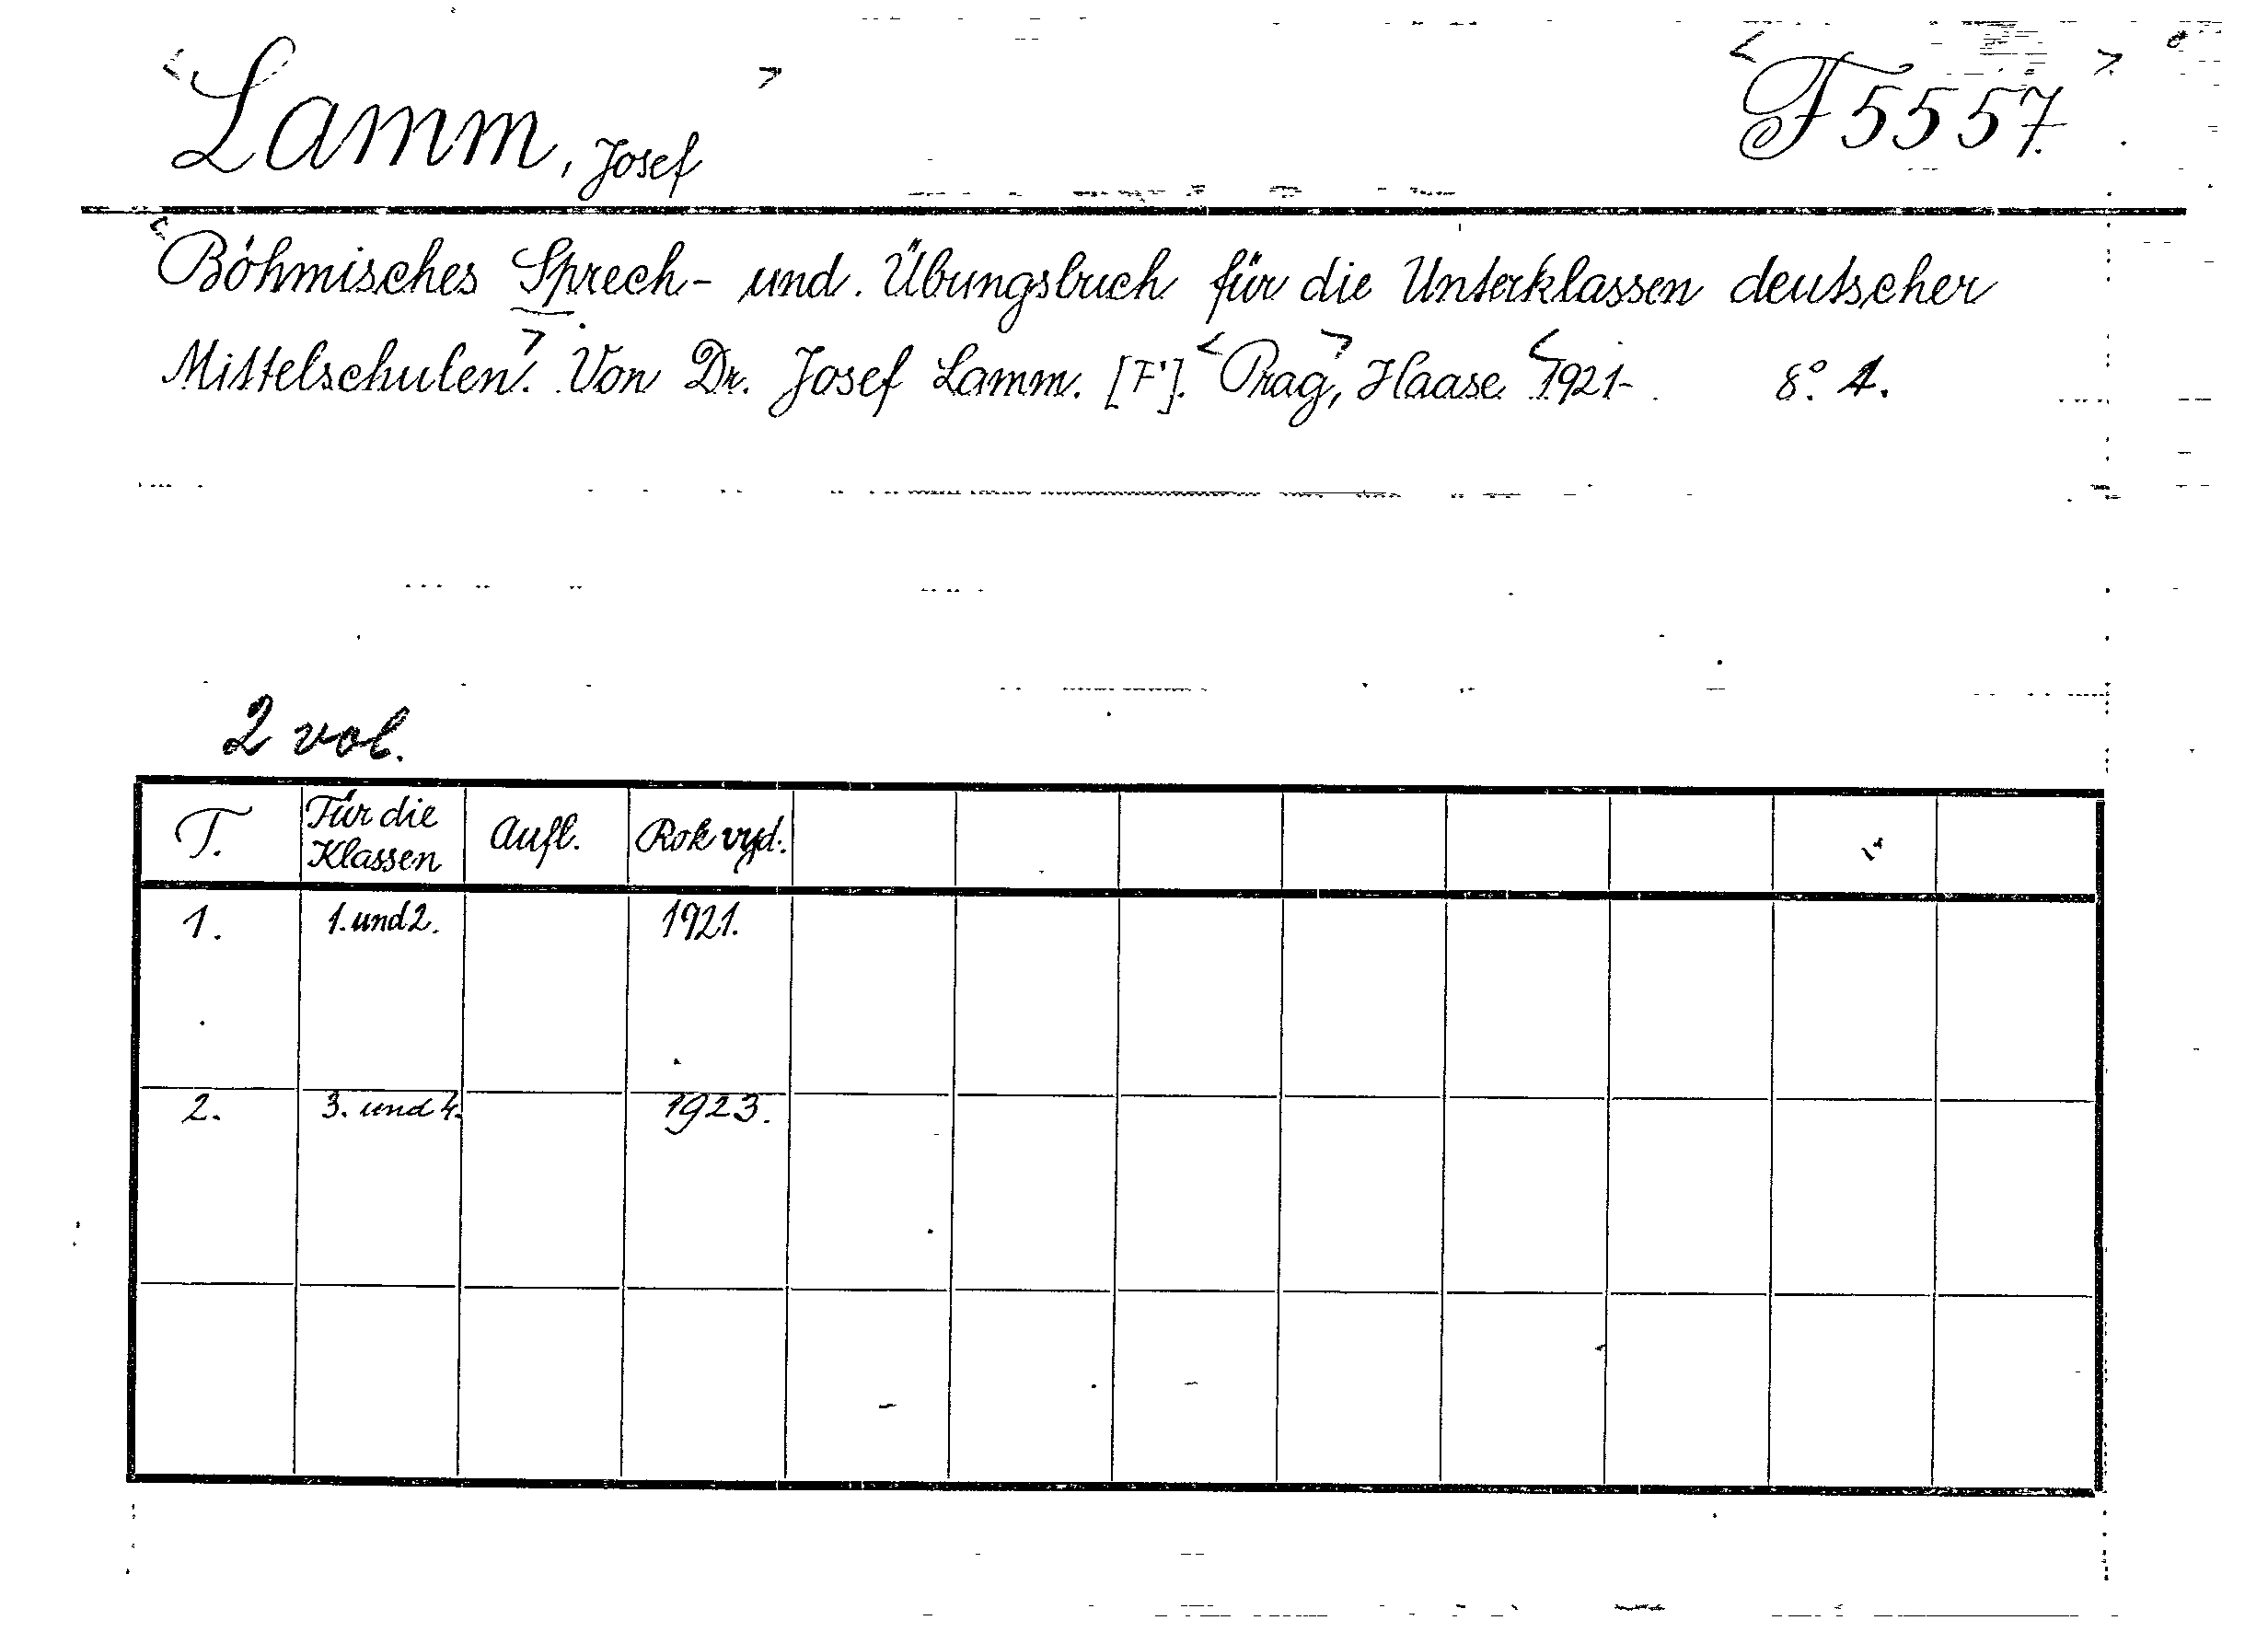 Lamm, Josef
F 5557.
Böhmisches Sprech- und Übungsbuch für die Unterklassen deutscher
Mittelschulen. Von Dr. Josef Lamm. [F']. Prag, Haase 1921- 8° A.
2 vol.
T. Für die Klassen Aufl. Rok vyd.
1. 1. und 2. 1921.
2. 3. und 4. 1923.